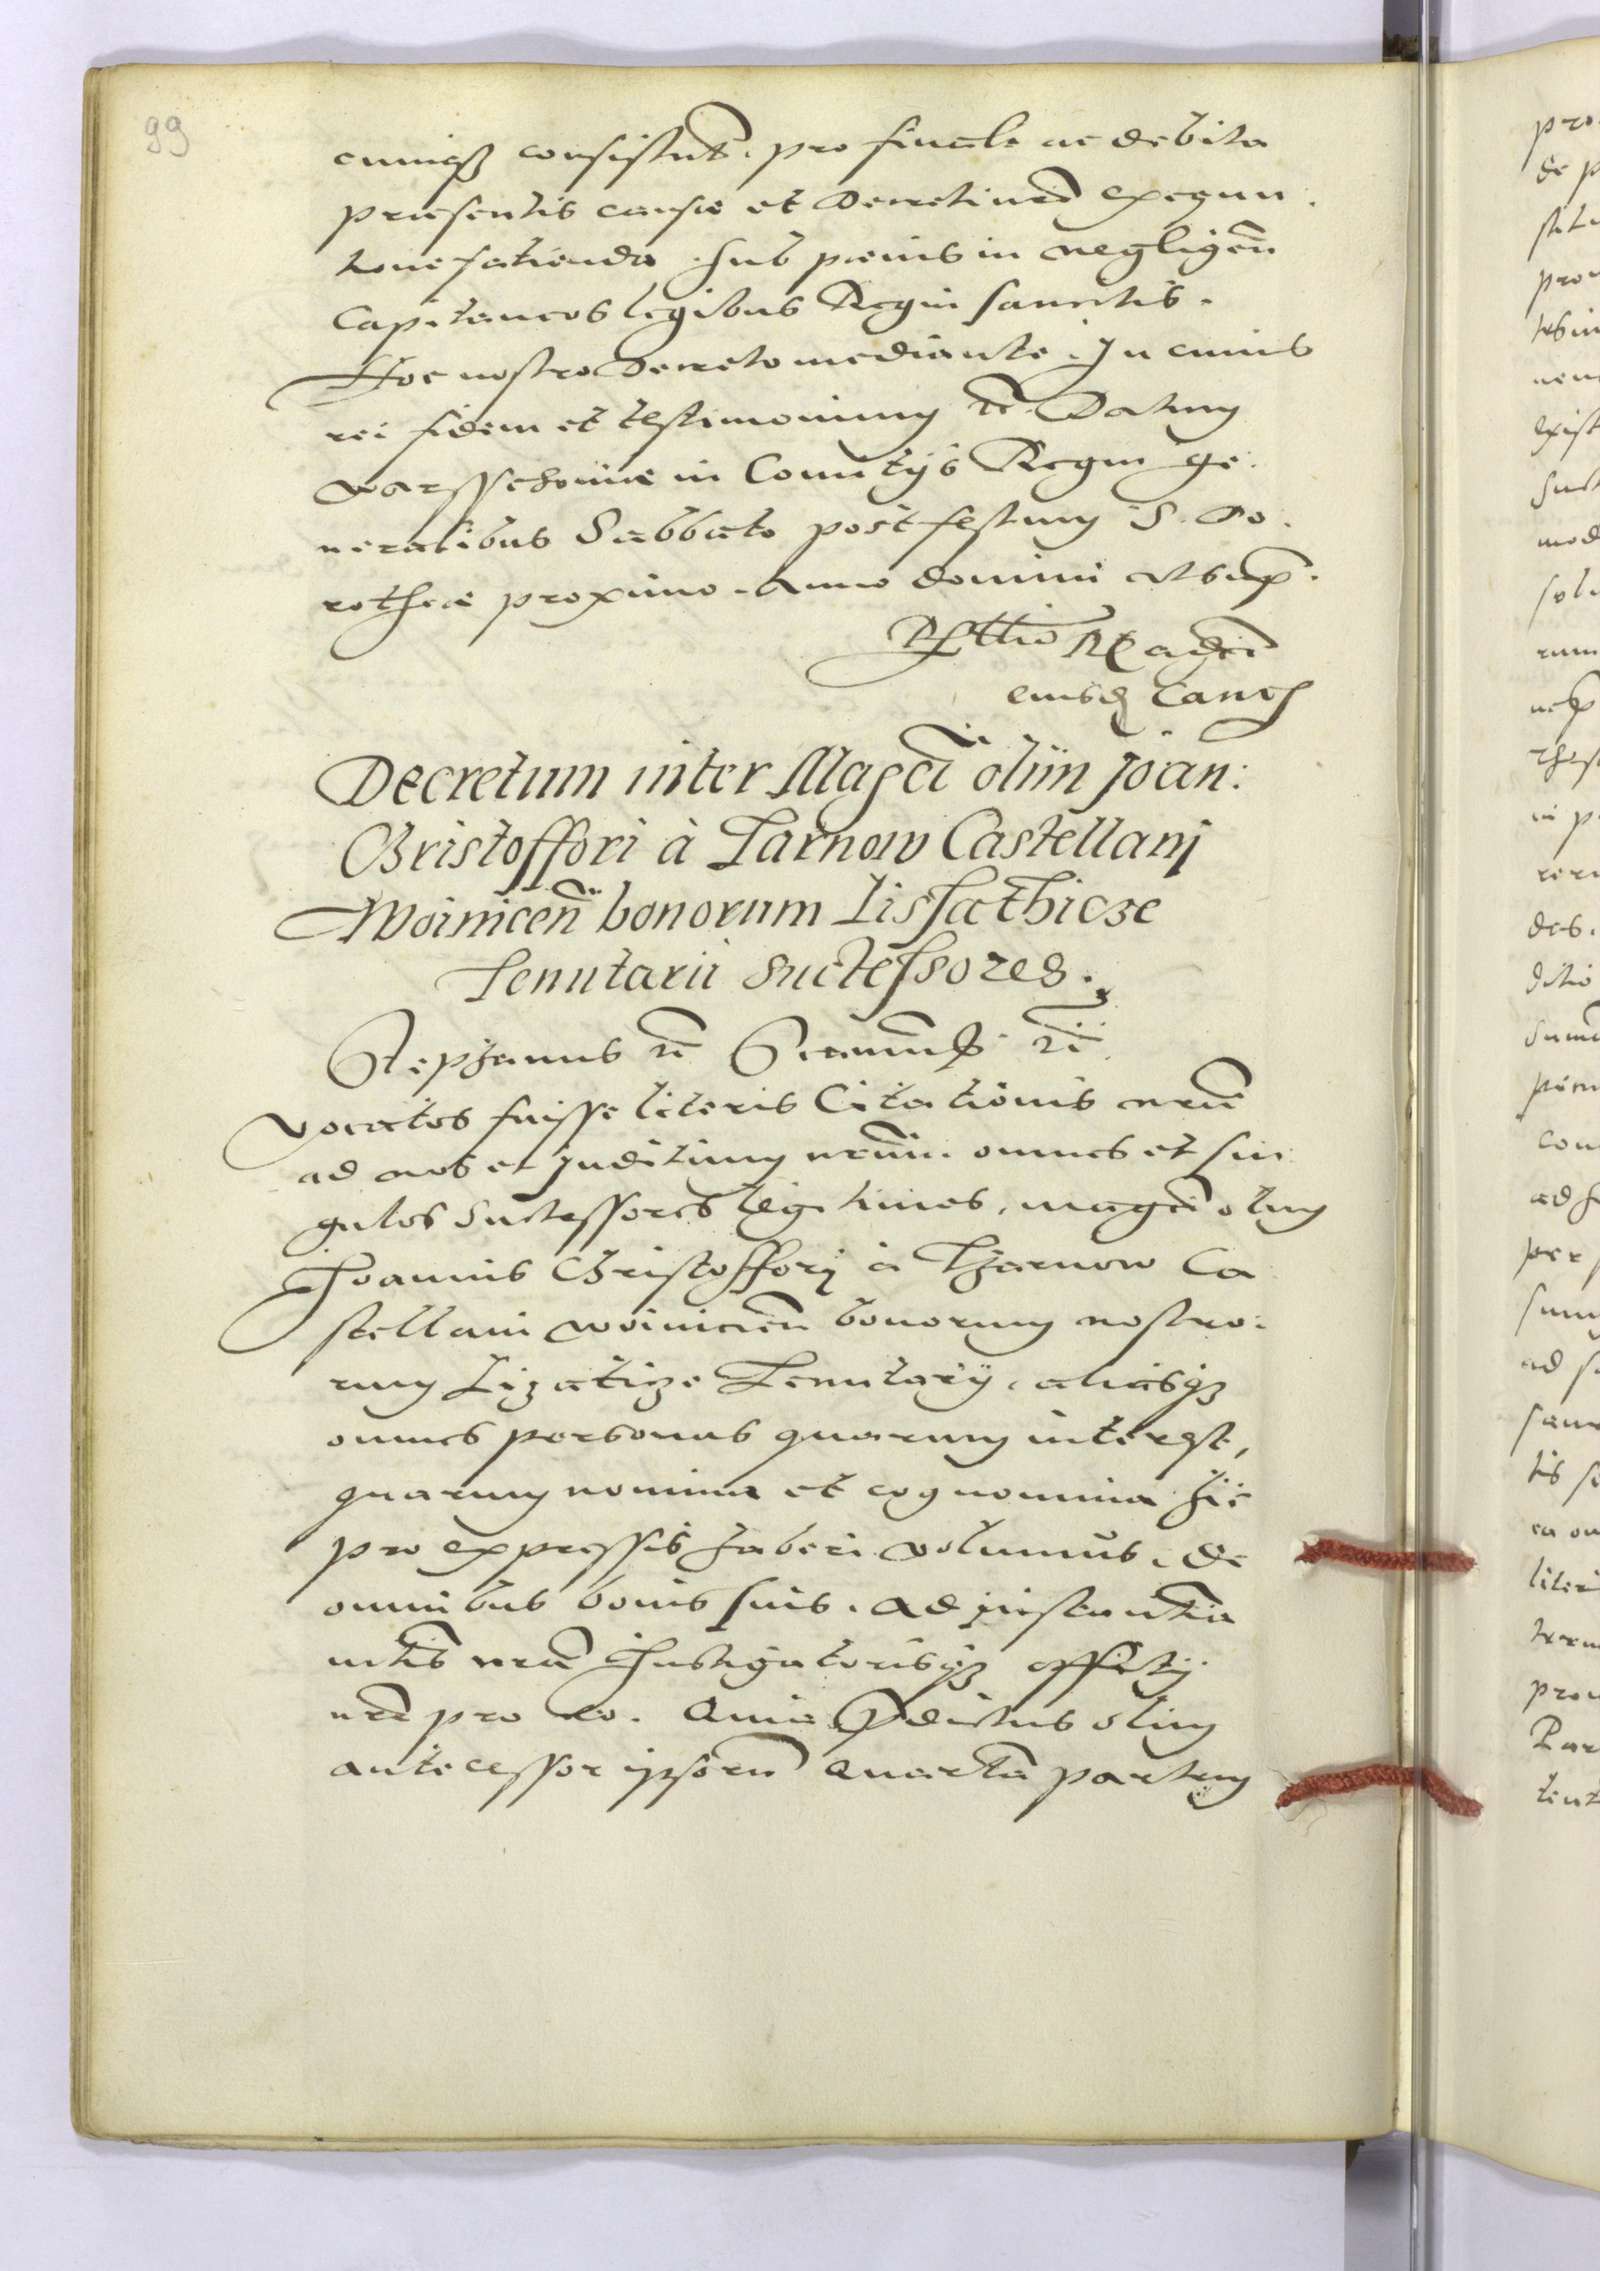 99
cuniqз consistunt. pro finali ac debita
præsentis causæ et Decreti nrĩ exequu:
tione facienda. sub pœnis in negligeñ
Capitaneos legibus Regni sancitis.
Hoc nostro Decreto mediante. In cuius
rei fidem et testimonium etc̃. Datum
Warsschoviæ in Comitijs Regni ge:
neralibus Sabbato post festum S. Do:
rotheæ proximo. Anno domini ut sup.
eiusd Canc
Decretum inter Magci olim Joan:
Christoffori à Tarnow Castellani
Woinicen̄ bonorum Lissathicze
Tenutarii Successores.
Stephanus etc̃ Significamus etc̃
Vocatos fuisse literis Citationis nrãe
ad nos et Juditium nrũm. omnes et sin:
gulos Successores legitimos, magci olim
Joannis Christofforj à Tharnow Ca
stellani Woinicen̄ bonorum nostro:
rum Lizatize Tenutarij, aliasqз
omnes personas quarum interest,
quarum nomina et cognomina hic
pro expressis haberi volumus. de
omnibus bonis suis. Ad instantiã
nrã Instigatorisqз offitij
nrĩ pro eo. Quia pdictus olim
antecessor ipsorũ Quartã partem
pro
de p
prou
exist
mod
solu
rum
in p
des.
ditio
con
per
ad s
tis s
liter
prou
Par